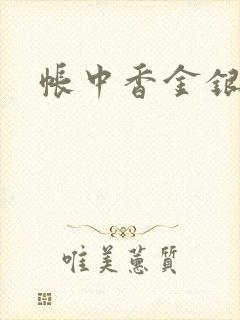 帳中香金銀
唯美蕙質